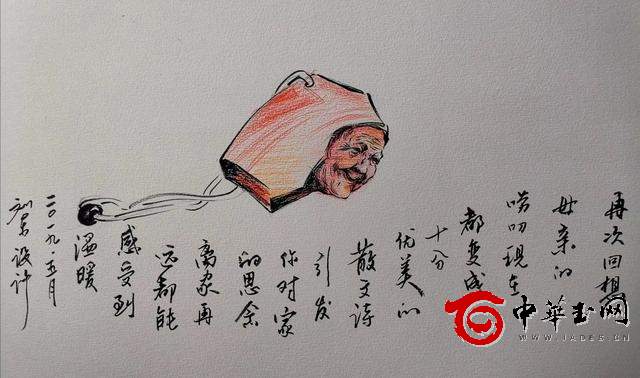 再次回想
母亲的
唠叨现在
都变成
十分
优美的
散文诗
引发
你对家
的思念
离家再
远都能
感受到
温暖
二〇一九.五月
设计
中華玉网
WWW.JADES.CN